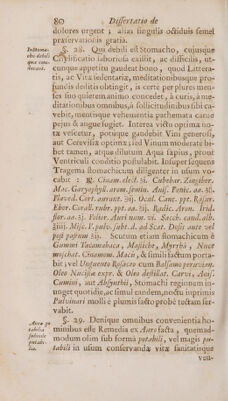 80 Dissertatio de
dolores urgent ; alias singulis octiduis semel
præservationis gratia.
§. 28. Qui debili est Stomacho, cujusque
Chylificatio laboriosa existit, ac difficilis, ut-
cunque appetitu gaudeat bono, quod Littera-
tis, ac Vita sedentariæ, meditationibusque pro-
fundis deditis obtingit, is certe per plures men-
ses suo quierem animo concedat, à curis, à me-
ditationibus omnibus, à sollicitudinibus sibi ca-
vebit, mentisque vehementia pathemata cane
pejus & angue fugiet. Interea victu optimæ no-
tæ vescetur, potuque gaudebit Vini generosi,
aut Cerevisiæ optimæ ; vel Vinum moderate bi-
bet tamen, aqua dilutum Aqua sapius, prout
Ventriculi conditio postulabit. Insuper sequens
Tragema stomachicum diligenter in usum vo-
cabit :
Mac. Garyophyll. arom. semin. Anis. Fœnic. aa. ʒß.
Flaved. Cort. aurant. ʒij. Ocul. Canc. ppt. Raspæ.
Ebor. Corall. rubr. ppt. aa. ʒij. Radic. Arom. Irid.
Sacch. cand. alb.
post pastum ʒij. Scutum etiam stomachicum è
Gummi Tacamahaca, Mastiche, Myrrha, Nuce
moschat. Cinamom. Macis, & simili factum porta-
bit ; vel Unguento Rosaceo cum Balsamo peruviano,
Oleo Nucistæ expr. & Oleo destillat. Carvi, Anisi,
Cumini, aut Absynthii, Stomachi regionem in-
unget quotidie, ac simul eandem, noctu inprimis
Pulvinari molli e plumis facto probe tectam ser-
vabit.
§. 29. Denique omnibus convenientia ho-
minibus esse Remedia ex Auro facta, quemad-
modum olim sub forma potabili, vel magis po-
tabili in usum conservandæ vitæ sanitatisque